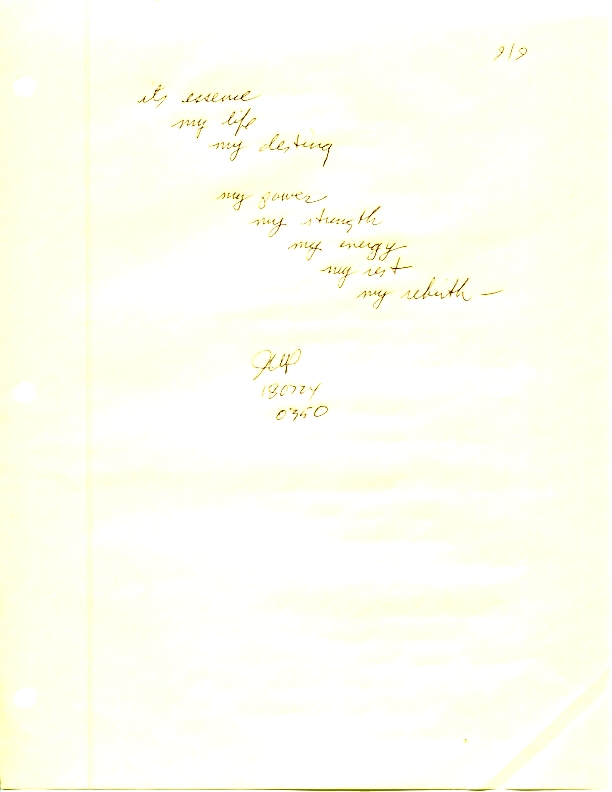 9/9
its essence
my life
my destiny
my power
my strength
my energy
my rest
my rebirth —
0350